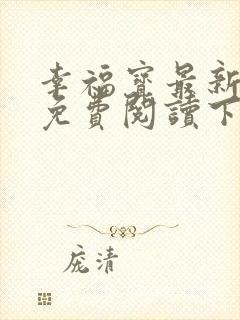 幸福寶最新
免費閱讀下
庞清